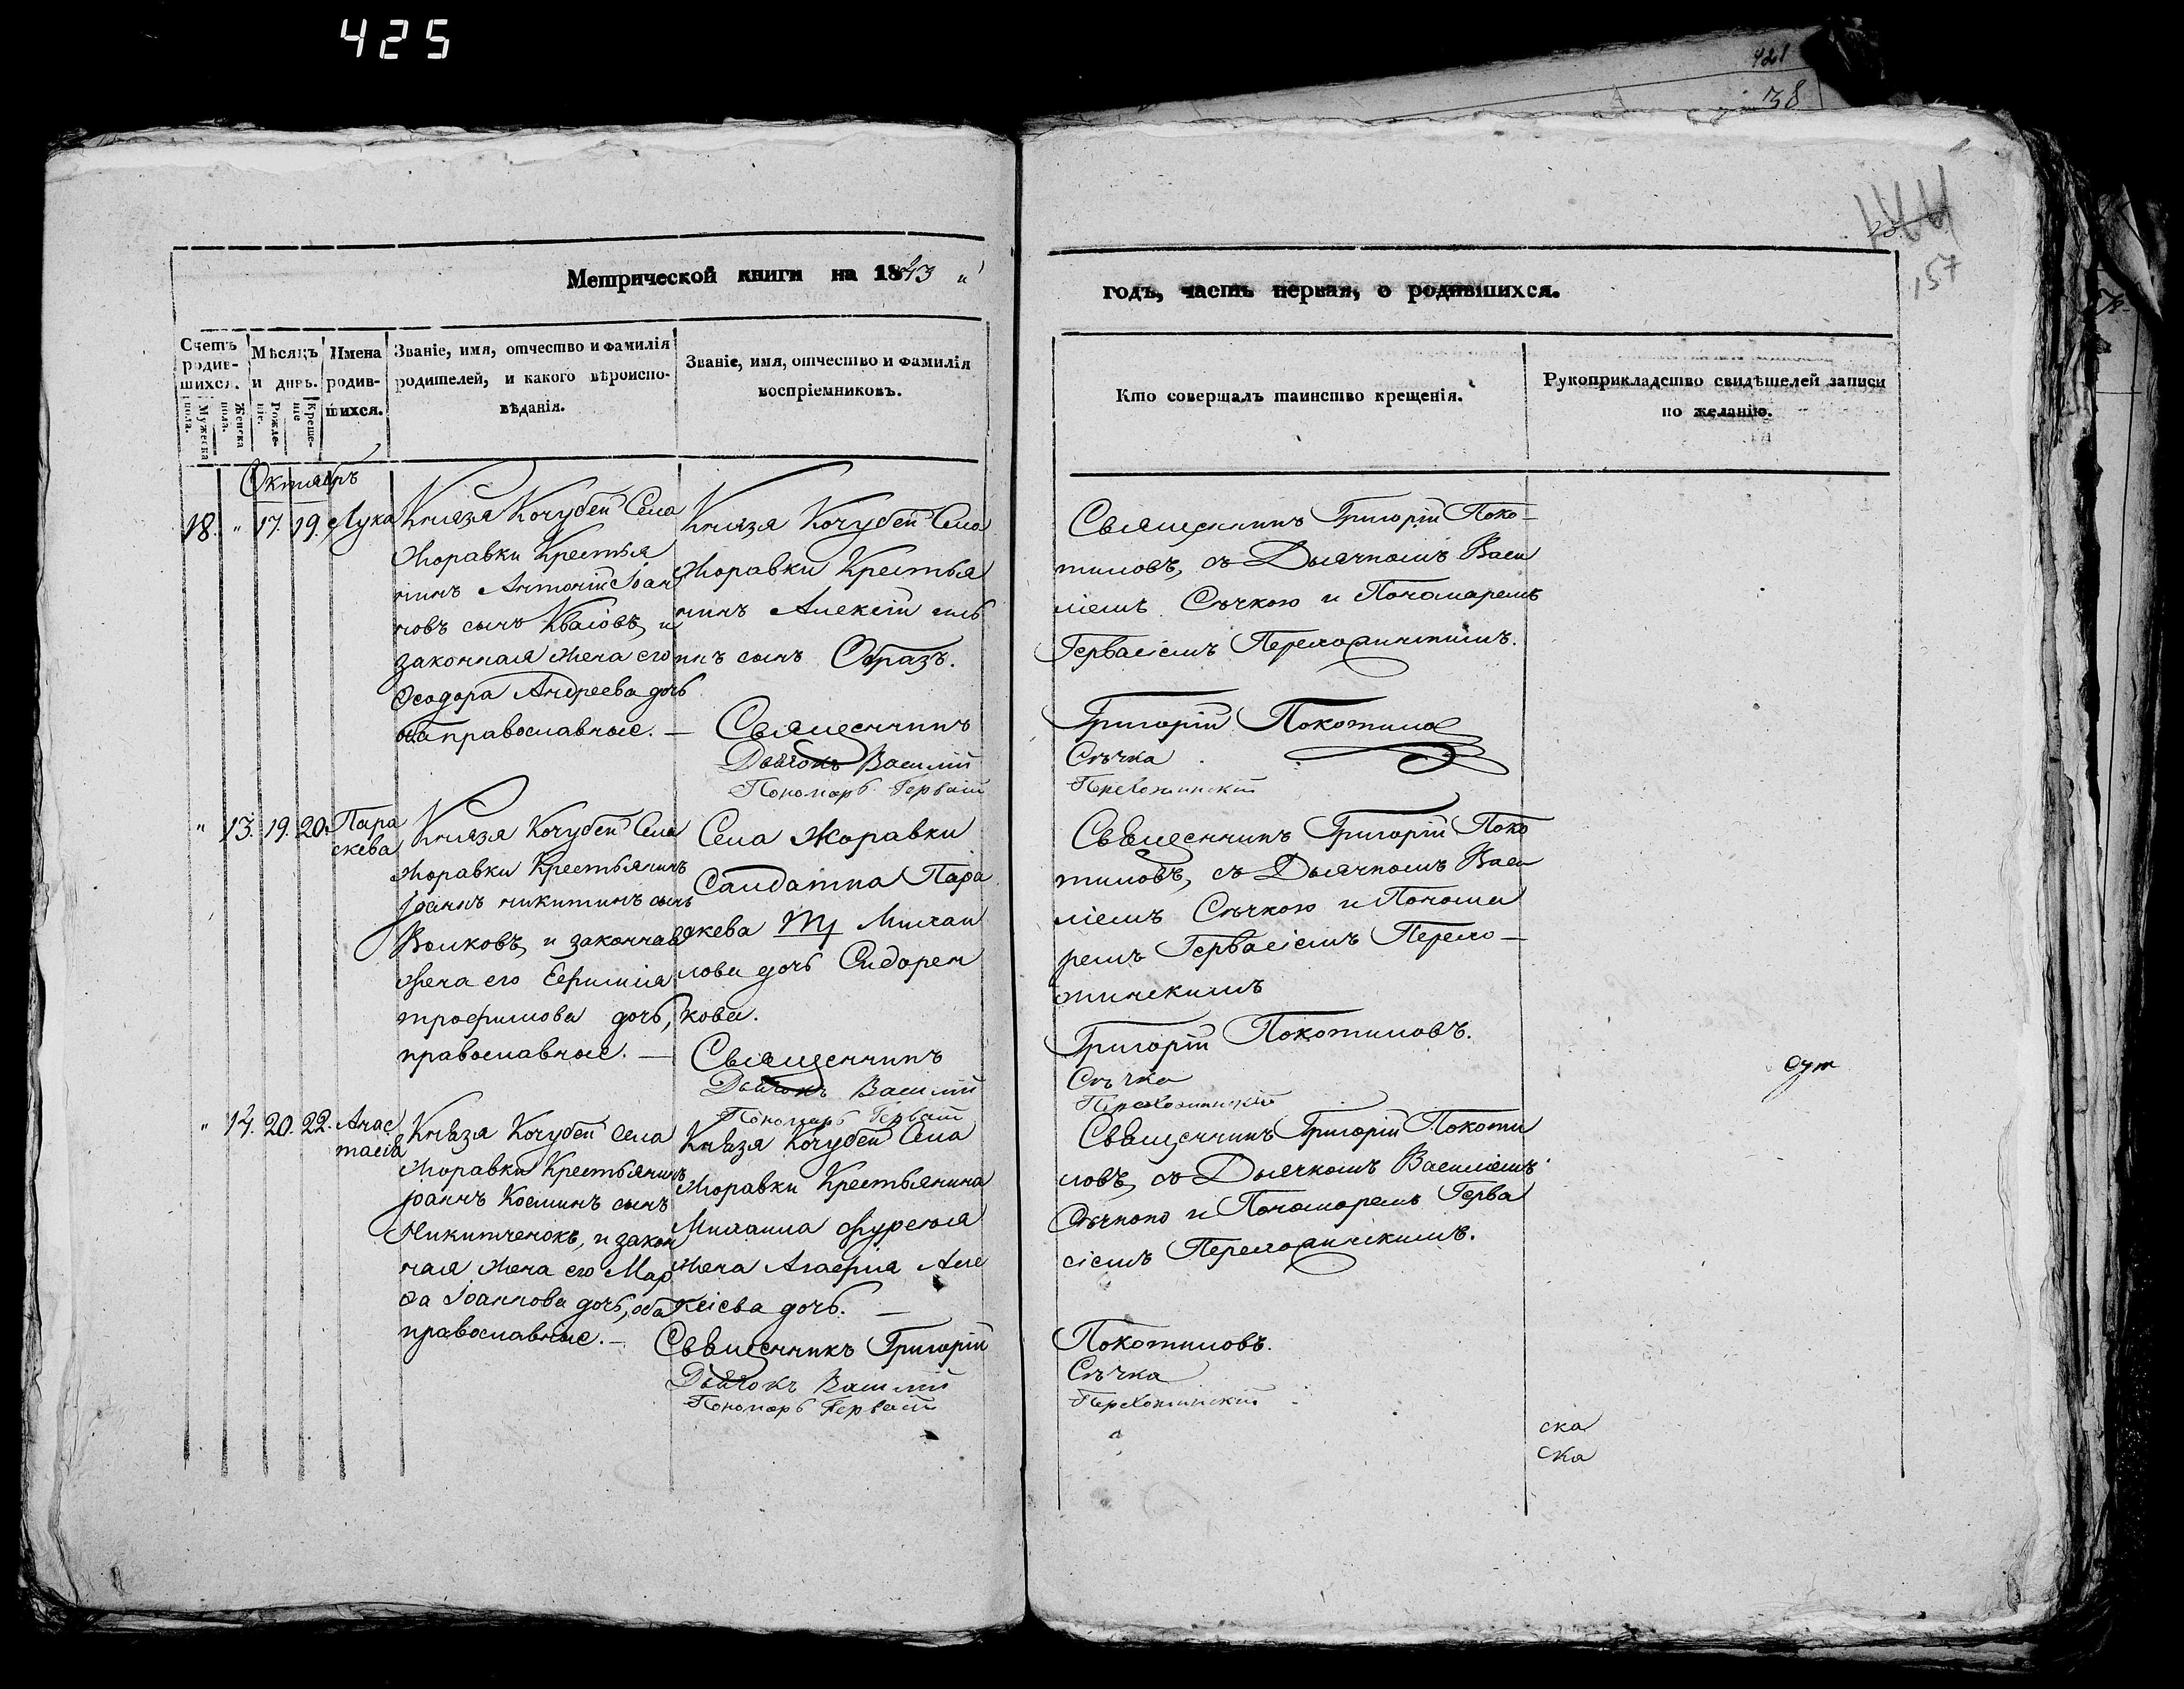 425
421
38
157
Метрической книги на 1843
годъ, часть первая, о родившихся.
Счетъ родив-шихся.
Мужеска пола.
Женска пола.
Мѣсяцъ и день.
Рожде-нiе.
Креще-нiе
Имена родив-шихся.
Званіе, имя, отчество и фамилія
родителей, и какого вѣроиспо-
вѣданія.
Званіе, имя, отчество и фамилія
воспріемниковъ.
Кто совершалъ таинство крещенія.
Рукоприкладство свидѣтелей записи
по желанію.
Октябрь
18. " 17. 19. Лука
Князя Кочубей Села
Жоравки Крестья
нинъ Антоній Іоан
новъ сынъ Квасовъ, и
законная жена его
Ѳеодора Андреева дочь
оба православные. —
Князя Кочубей Села
Жоравки Крестья
нинъ Алексій
нъ сынъ Образъ.
Священникъ
Дьячокъ Василій
Пономарь Гервасій
Священникъ Григорій Поко-
тиловъ, съ Дьячкомъ Васи
ліемъ Сѣчкою и Пономаремъ
Гервасіемъ Перехожинскимъ.
Григорій Покотиловъ
Сѣчка
Перехожинскій
" 13. 19. 20. Пара
скева
Князя Кочубей Села
Жоравки Крестьянинъ
Іоаннъ никитинъ сынъ
Волковъ, и законная
жена его Евфимія
трофимова дочь,
православные. —
Села Жоравки
Салдатка Пара
скева Михаи
лова дочь Сидорен
кова.
Священникъ
Дьячокъ Василій
Пономарь Гервасій
Священникъ Григорій Поко
тиловъ, съ Дьячкомъ Васи
ліемъ Сѣчкою и Понома
ремъ Гервасіемъ Перехо-
жинскимъ
Григорій Покотиловъ.
Сѣчка
Перехожинскій
" 14. 20. 22. Анас
тасія
Князя Кочубей села
Жоравки Крестьянинъ
Іоаннъ Косминъ сынъ
Никитченокъ, и закон
ная жена его Мар
ѳа Іоаннова дочь, оба
православные. —
Князя Кочубей Села
Жоравки Крестьянина
Михаила
жена Агафія Але
ксіева дочь. —
Священникъ Григорій
Дьячокъ Василій
Пономарь Гервасій
Священникъ Григорій Покоти
ловъ, съ Дьячкомъ Василіемъ
Сѣчкою и Пономаремъ Герва
сіемъ Перехожинскимъ.
Покотиловъ.
Сѣчка
Перехожинскій
ска
ска